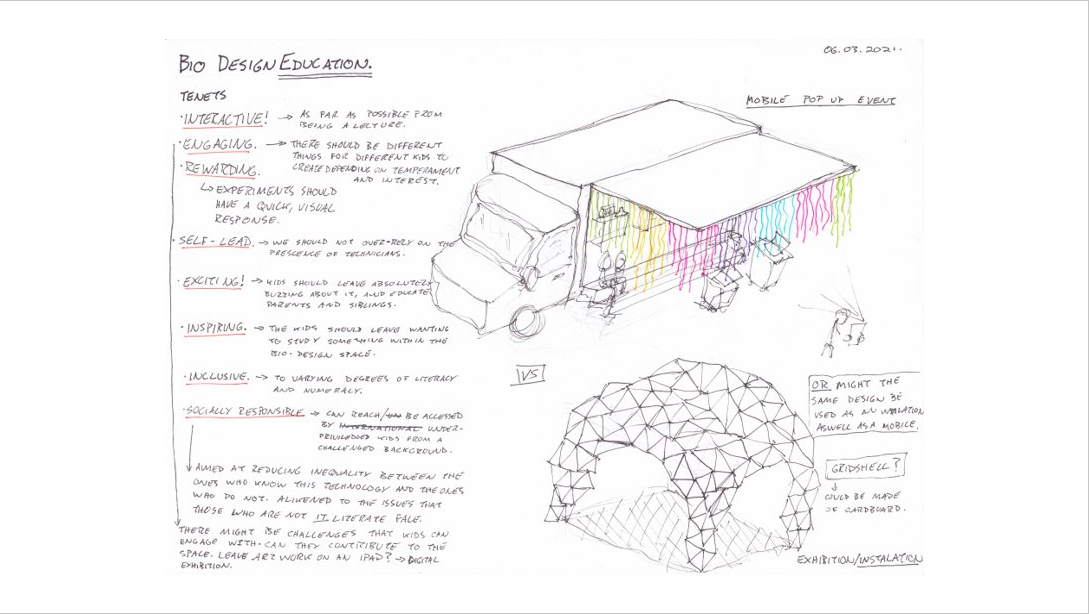 06.03.2021.
BIO DESIGN EDUCATION.
TENETS
·INTERACTIVE! → AS FAR AS POSSIBLE FROM
BEING A LECTURE.
·ENGAGING. → THERE SHOULD BE DIFFERENT
THINGS FOR DIFFERENT KIDS TO
CREATE DEPENDING ON TEMPERAMENT
AND INTEREST.
·REWARDING.
↳ EXPERIMENTS SHOULD
HAVE A QUICK, VISUAL
RESPONSE.
·SELF-LEAD. → WE SHOULD NOT OVER-RELY ON THE
PRESCENCE OF TECHNICIANS.
·EXCITING! → KIDS SHOULD LEAVE ABSOLUTELY
BUZZING ABOUT IT, AND EDUCATE
PARENTS AND SIBLINGS.
·INSPIRING. → THE KIDS SHOULD LEAVE WANTING
TO STUDY SOMETHING WITHIN THE
BIO-DESIGN SPACE.
·INCLUSIVE. → TO VARYING DEGREES OF LITERACY
AND NUMERALY.
·SOCIALLY RESPONSIBLE → CAN REACH/ BE ACCESSED
BY INTERNATIONAL UNDER-
PRIVILEDGED KIDS FROM A
CHALLENGED BACKGROUND.
AIMED AT REDUCING INEQUALITY BETWEEN THE
ONES WHO KNOW THIS TECHNOLOGY AND THE ONES
WHO DO NOT. ALIKENED TO THE ISSUES THAT
THOSE WHO ARE NOT IT LITERATE FALE.
THERE MIGHT BE CHALLENGES THAT KIDS CAN
ENGAGE WITH · CAN THEY CONTRIBUTE TO THE
SPACE. LEAVE ARTWORK ON AN IPAD? → DIGITAL
EXHIBITION.
MOBILE POP UP EVENT
VS
OR MIGHT THE
SAME DESIGN BE
USED AS AN INSTALATION
ASWELL AS A MOBILE.
GRIDSHELL?
↓
COULD BE MADE
OF CARDBOARD.
EXHIBITION/INSTALATION